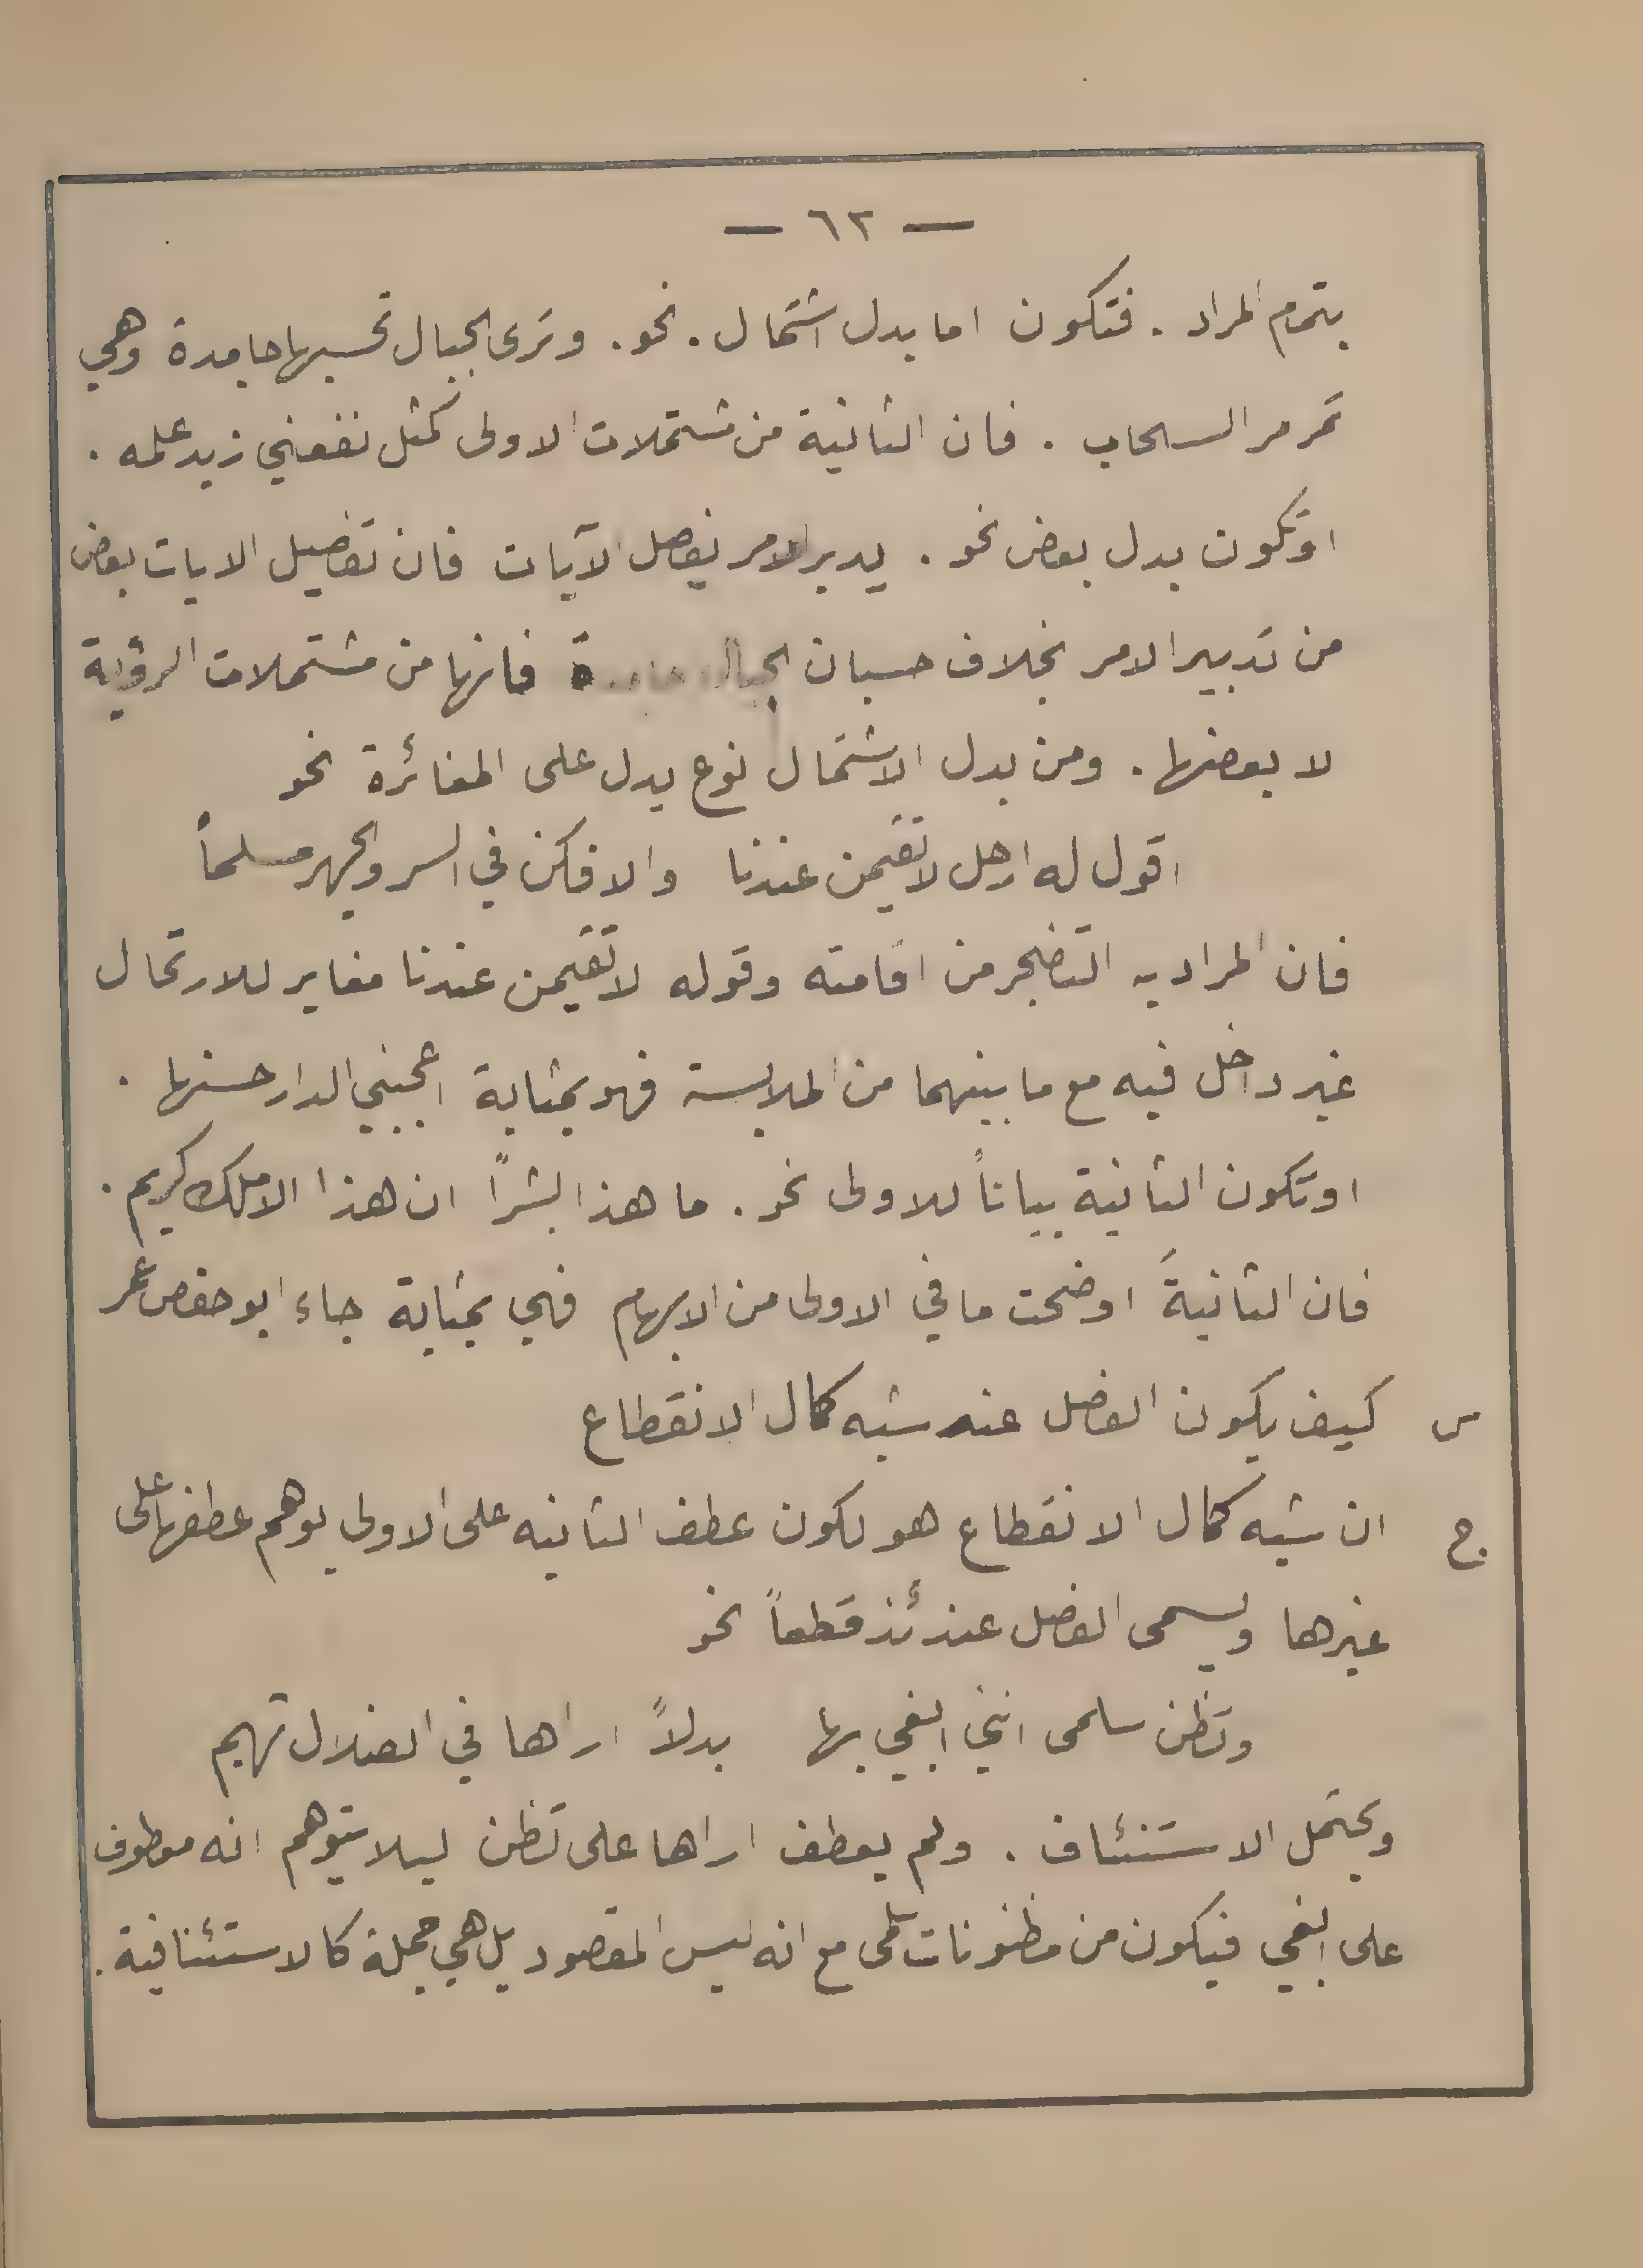 — ٦٣ —
بتمام المراد . فتكون اما بدل اشتمال . نحو . وترى الجبال تحسبها جامدة وهي
تمر مر السحاب . فان الثانية من مشتملات الاولى كمثل نفعني زيد علمه .
او تكون بدل بعض نحو . يدبر الامر يفصل الآيات فان تفصيل الايات بعض
من تدبير الامر بخلاف حسبان الجبال جامدة فانها من مشتملات الرؤية
لا بعضها . ومن بدل الاشتمال نوع يدل على المغائرة نحو
اقول له ارحل لا تقيمن عندنا والا فكن في السر والجهر مسلماً
فان المراد به التضجر من اقامته وقوله لا تقيمن عندنا مغاير للارتحال
غير داخل فيه مع ما بينهما من الملابسة فهو بمثابة اعجبني الدار حسنها .
او تكون الثانية بياناً للاولى نحو . ما هذا بشراً ان هذا الا ملك كريم .
فان الثانيةَ اوضحت ما في الاولى من الابهام فهي بمثابة جاء ابو حفص عمر
س كيف يكون الفصل عند شبه كمال الانقطاع
ج ان شبه كمال الانقطاع هو لكون عطف الثانيه على الاولى يوهم عطفها على
غيرها ويسمى الفصل عندئذ قطعاً نحو
وتظن سلمى انني ابغي بها بدلاً اراها في الضلال تهيم
ويحتمل الاستئناف . ولم يعطف اراها على تظن ليلا يتوهم انه معطوف
على ابغي فيكون من مظنونات سلمى مع انه ليس المقصود بل هي جملة كالاستئنافية .